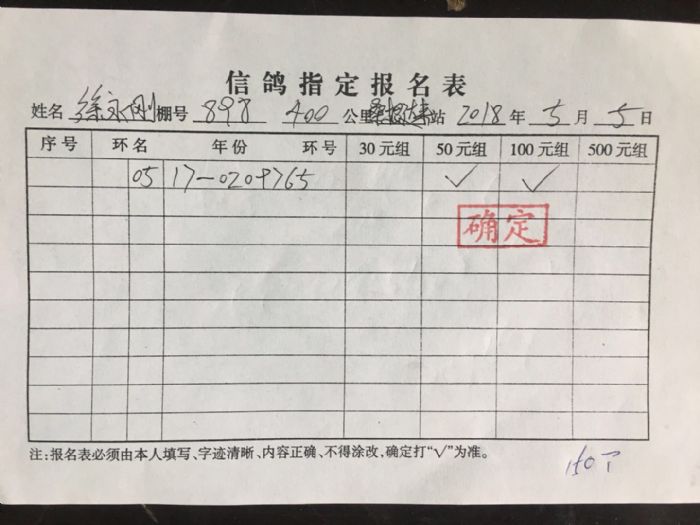 信鸽指定报名表
姓名 徐永刚 棚号 898 400 公里 站 2018 年 5 月 5 日
序号 环名 年份 环号 30元组 50元组 100元组 500元组
05 17-0209765 ✓ ✓
确定
注:报名表必须由本人填写、字迹清晰、内容正确、不得涂改,确定打“√”为准。